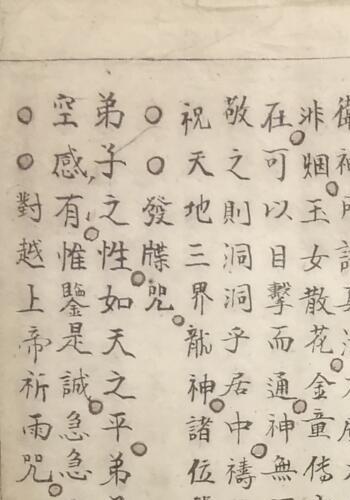 衛神所
非烟玉女散花。金童傳
在。可以目擊而通神。無
敬之則洞洞乎居中。禱
祝天地三界龍神。諸位
○○發牒咒。
弟子之性。如天之平。弟
空感有。惟鑒是誠。急急
○○對越上帝祈雨咒。